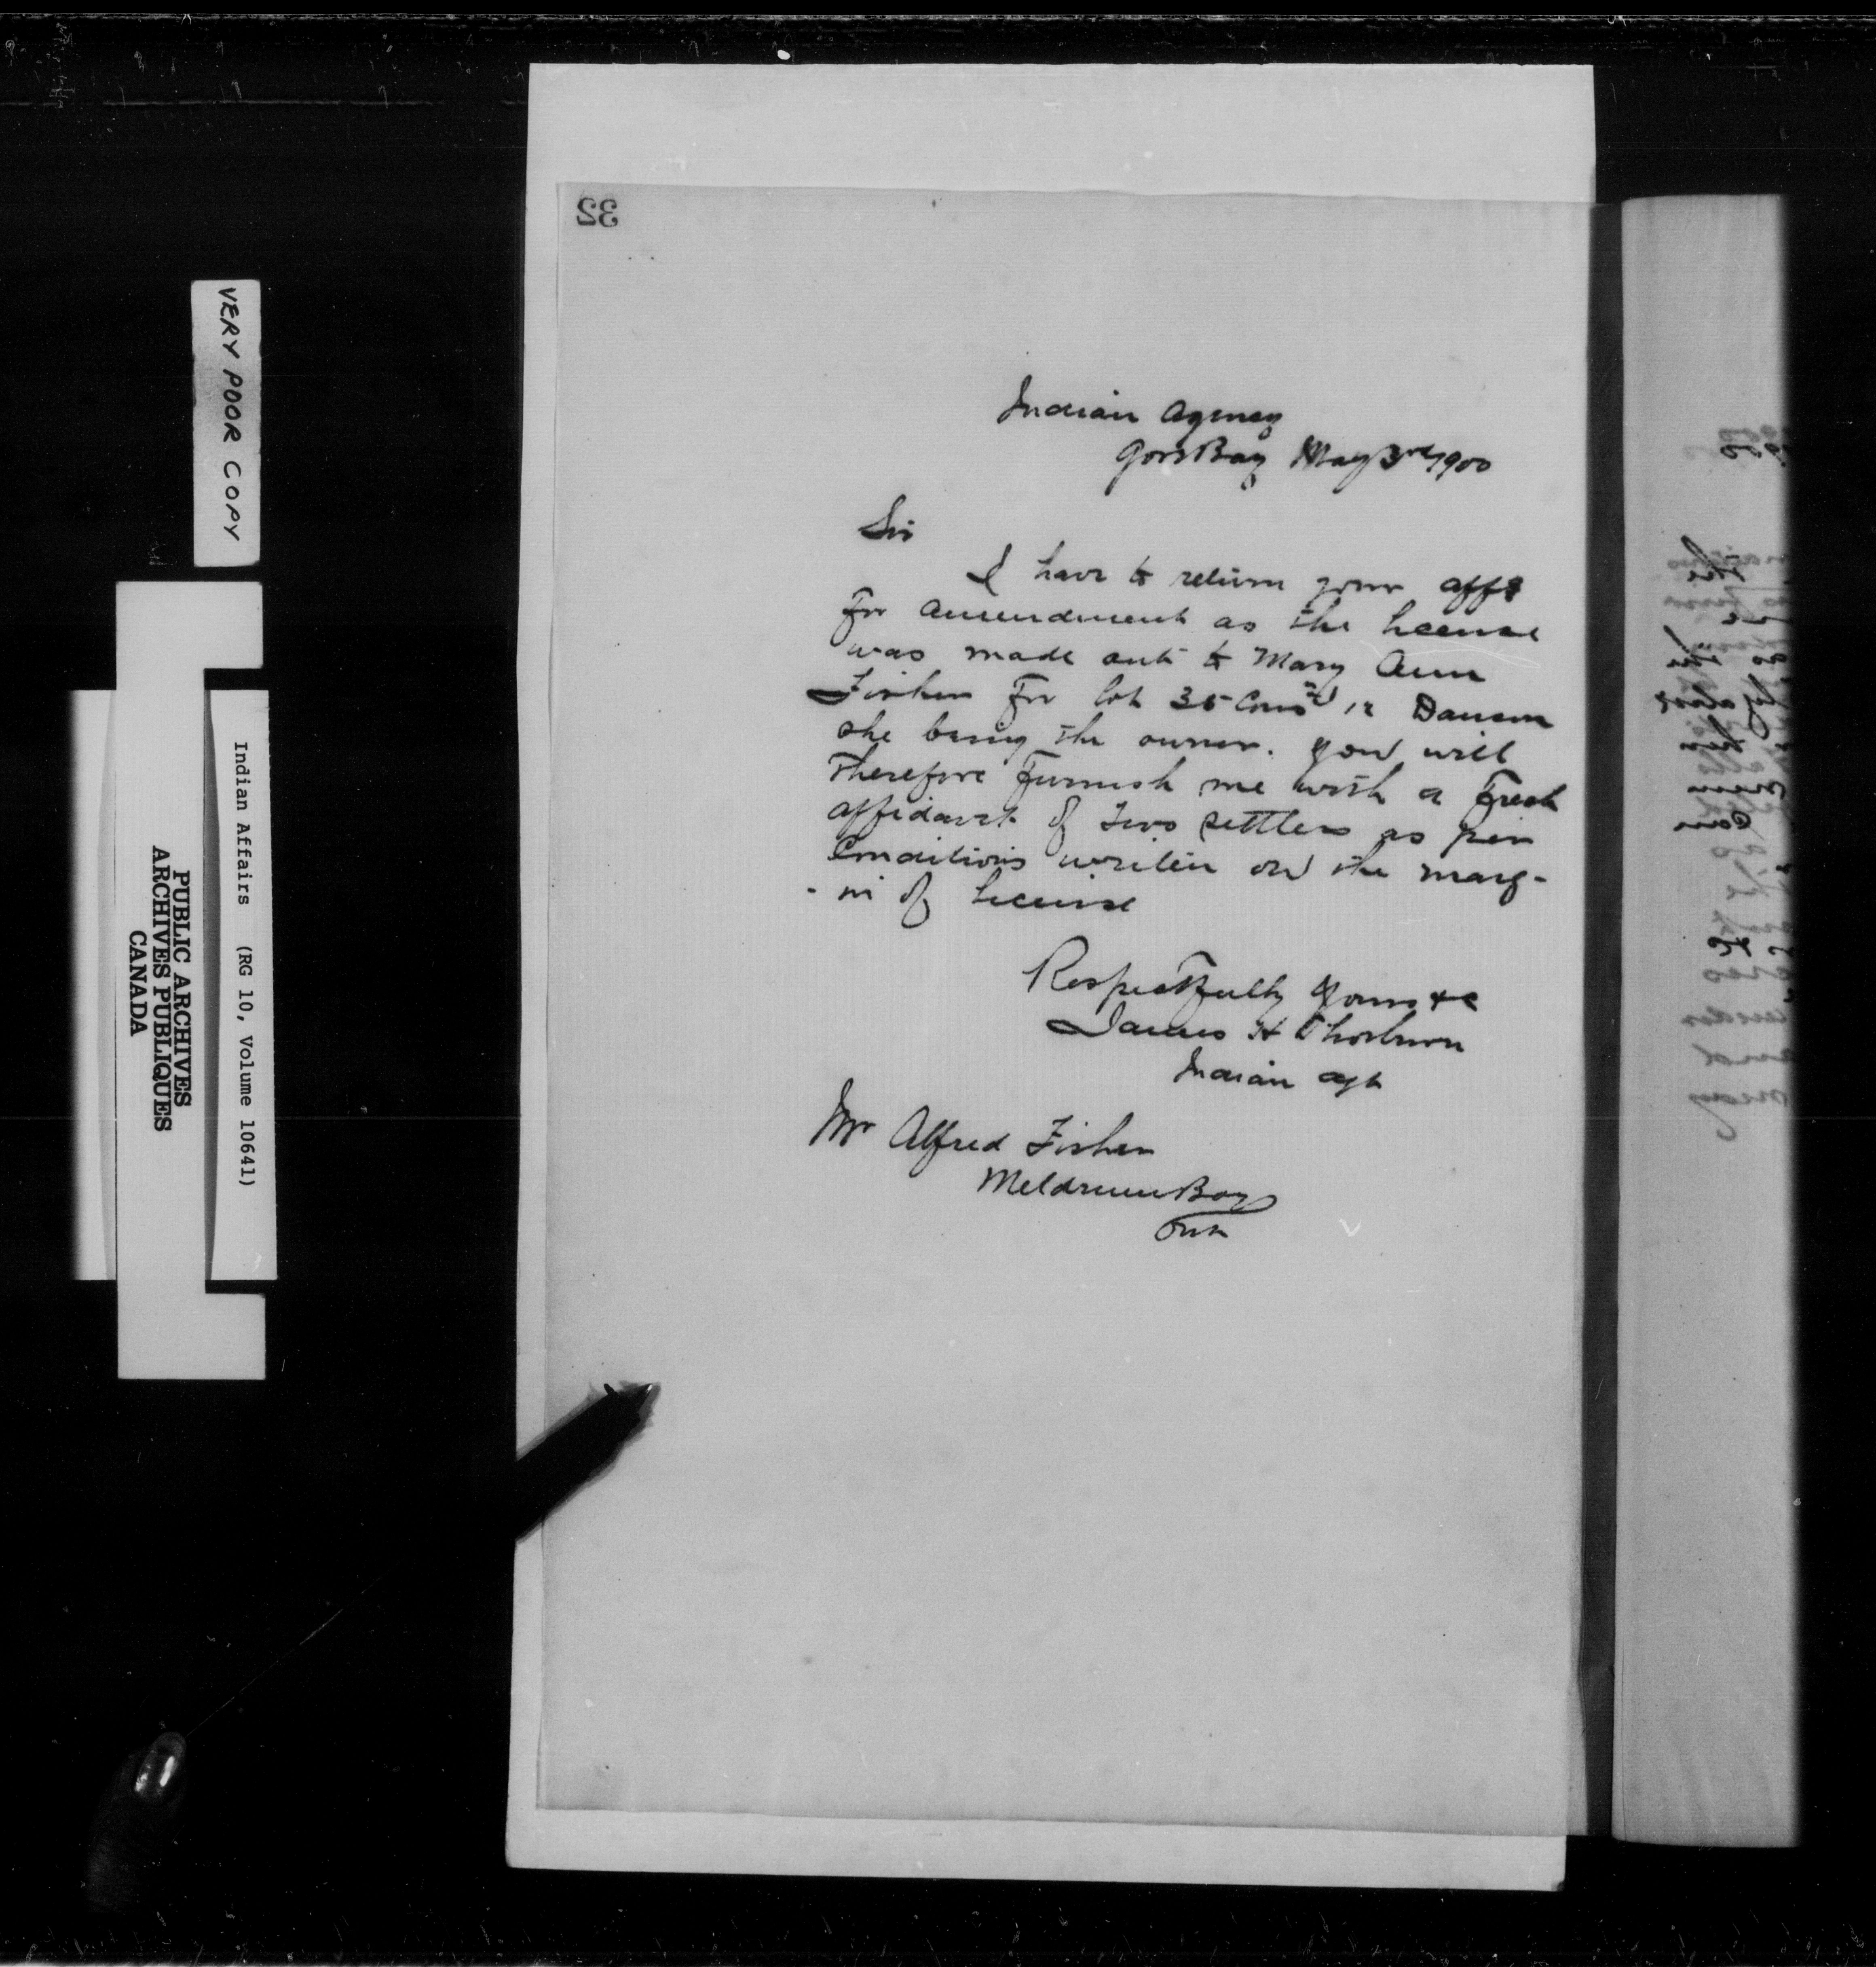 32
Indian Agency
Gore Bay May 3rd 1900
Sir
I have to return your affs
for amendment as the license
was made out to Mary Ann
Fisher for lot 35 Con 12 Dawson
she being the owner. you will
Therefore furnish me with a Fresh
affidavit of two settlers as per
Conditions writen on the marg-
-in of license
Respectfully Yours &c
James H Thorburn
Indian agt
Mr Alfred Fisher
Meldrum Bay
Ont
VERY POOR COPY
Indian Affairs (RG 10, Volume 10641)
PUBLIC ARCHIVES
ARCHIVES PUBLIQUES
CANADA